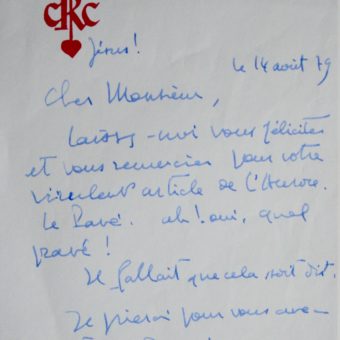 CRC
Jésus!
le 14 août 79
Cher Monsieur,
Laissez-moi vous féliciter
et vous remercier pour votre
virulent article de l'Aurore.
Le Pavé. ah! oui, quel
pavé!
Il fallait que cela soit dit.
Je prierai pour vous ave-